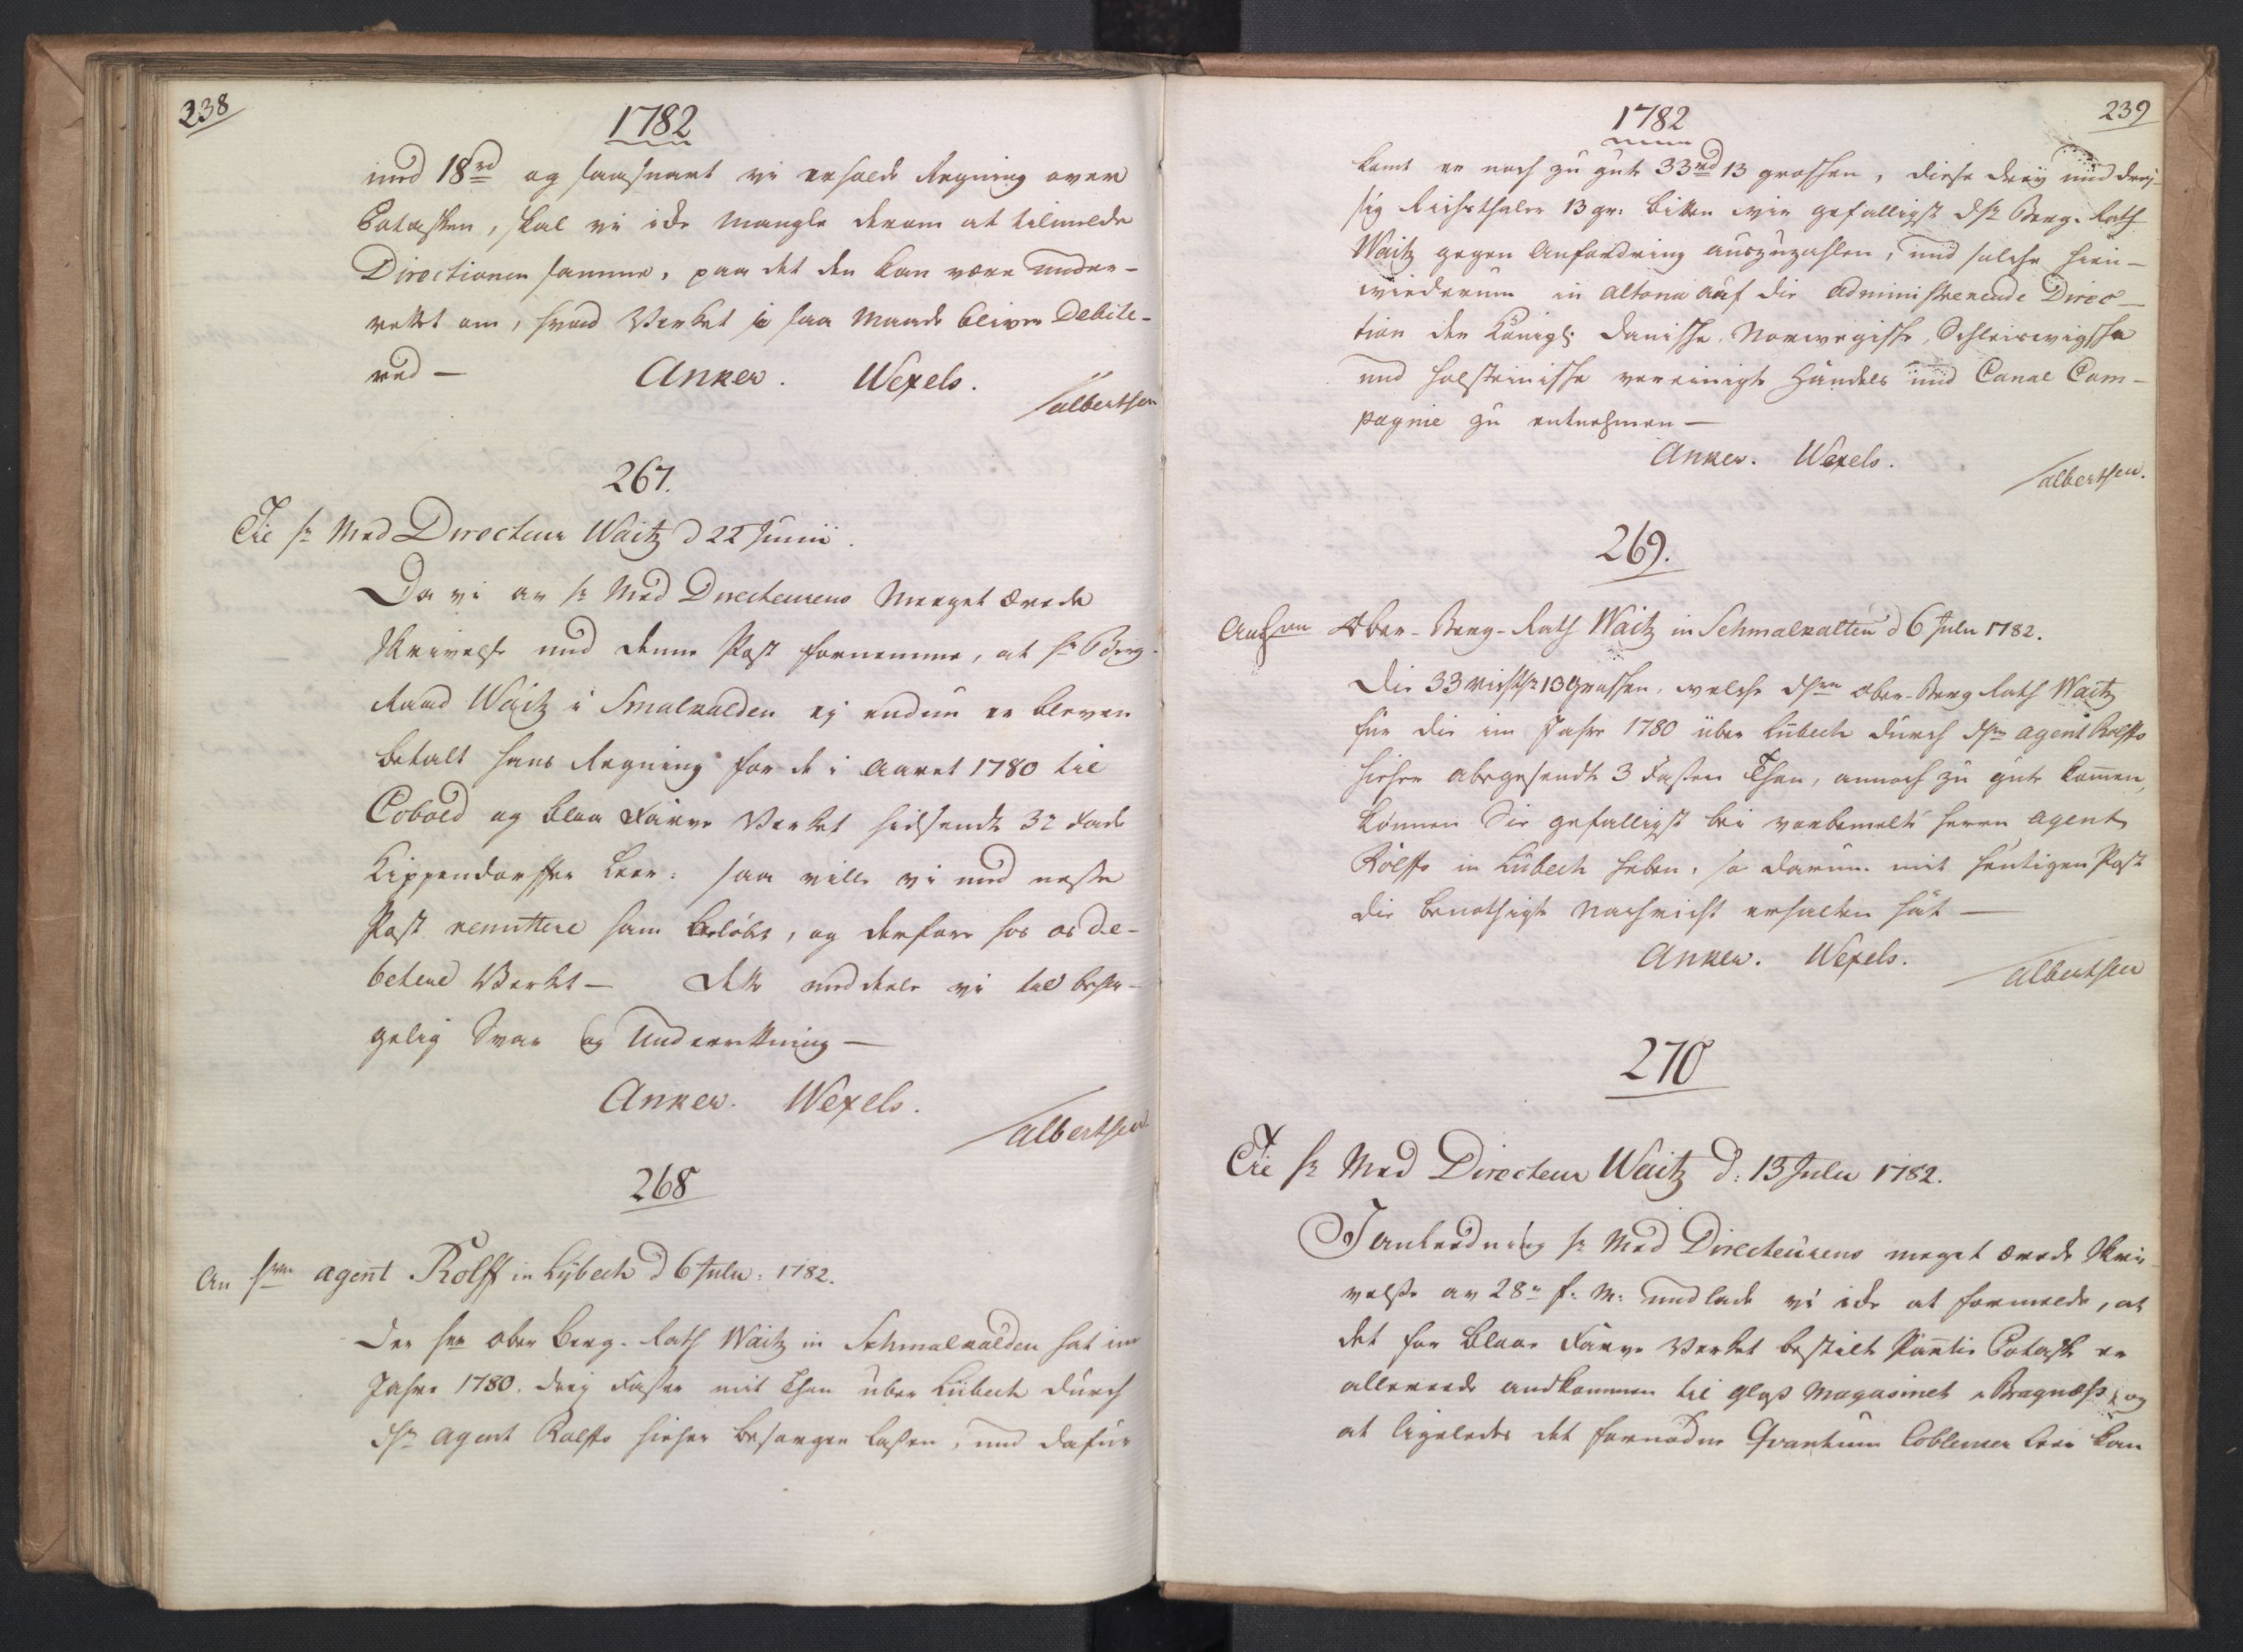 238
1782
med 18 rd og saasnart vi erholde Regning over
Potasken, skal vi icke mangle derom at tilmelde
Directionen samme, paa det den kan være under-
rettet om, hvad Verket i saa Maade bliver Debite-
red —
Anker. Wexels.
Albertsen
267.
Til Hr Med Directeur Waitz d 22 Junii.
Da vi av Hr Med Directeurens Meeget ærede
Skrivelse med denne Post fornemme, at Hr Berg-
Raad Waitz i Smalkalden ej endnu er bleven
betalt hans Regning for de i Aaret 1780 til
Cobold og blaa Farve Verket hidsendte 32 Fade
Kippendorffer Leer: saa ville vi med neste
Post remittere ham beløbet, og derfore hos os de-
betere Verket — Dette meddeele vi til beha-
gelig Svar og Underretning —
Anker. Wexels.
Albertsen
268
An Hrn Agent Rolff in Lybech d 6 Julii: 1782.
Der Herr Ober Berg-Rath Waitz in Schmalkalden hat im
Jahre 1780. drey Fasser mit Thon über Lübech durch
Hr Agent Rolffs hieher besorgen lassen, und dafür
239
1782
komt er noch zu gute 33 rd 13 groshen, diese drey und drey-
sig Reichsthaler 13 gr: bitten wir gefalligst Hr Berg-Rath
Waitz gegen Anfordring auszuzahlen, und solche hin-
wiederum in Altona auf die Administrerende Direc-
tion der Königl: Danishe, Norwegishe, Schleiswigshe
und Holsteinishe vereinigte Handels und Canal Com-
pagnie zu entnehmen —
Anker. Wexels.
Albertsen.
269.
An Hrn Ober-Berg-Rath Waitz in Schmalkalten d 6 Julii 1782.
Die 33 Reichsthr 13 Groshen, welche Hrn Ober-Berg Rath Waitz
für die im Jahre 1780 über Lübech durch Hrn Agent Rolffs
hieher abgesendte 3 Fasser Thon, annoch zu gute kommen,
können Sie gefalligst bei vorbemelte Herrn Agent
Rolffs in Lübech heben, so darum mit heutigen Post
die benothigte Nachricht erhalten hat —
Anker. Wexels.
Albertsen
270
Til Hr Med Directeur Waitz d: 13 Julii 1782.
I Anledning Hr Med Directeurens meget ærede Skri-
velse av 28de f: M: undlade vi icke at formelde, at
det for Blaae Farve Verket bestilte Partie Potaske er
allereede andkommen til Glas Magasinet i Bragnæss, og
at ligeledes det fornødne Qvantum Coblenser Leer kan